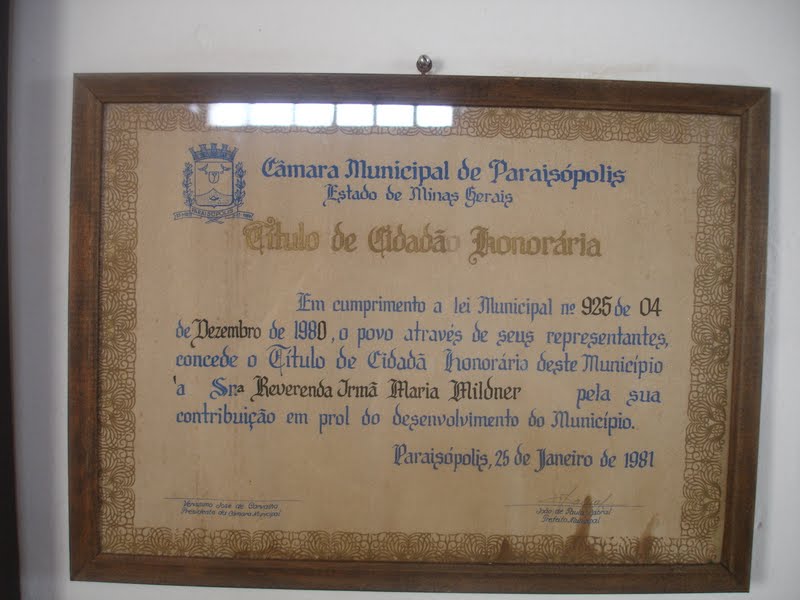 Câmara Municipal de Paraisópolis
Estado de Minas Gerais
Título de Cidadão Honorária
Em cumprimento a lei Municipal nº 925 de 04
de Dezembro de 1980, o povo através de seus representantes,
concede o Título de Cidadã Honorária deste Município
'a Srª Reverenda Irmã Maria Mildner pela sua
contribuição em prol do desenvolvimento do Município.
Paraisópolis, 25 de Janeiro de 1981
José de Carvalho
Presidente da Câmara Municipal
João de Paula Cabral
Prefeito Municipal